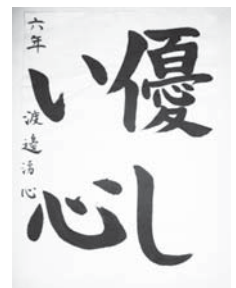 優し
い心
六年 渡邉清心